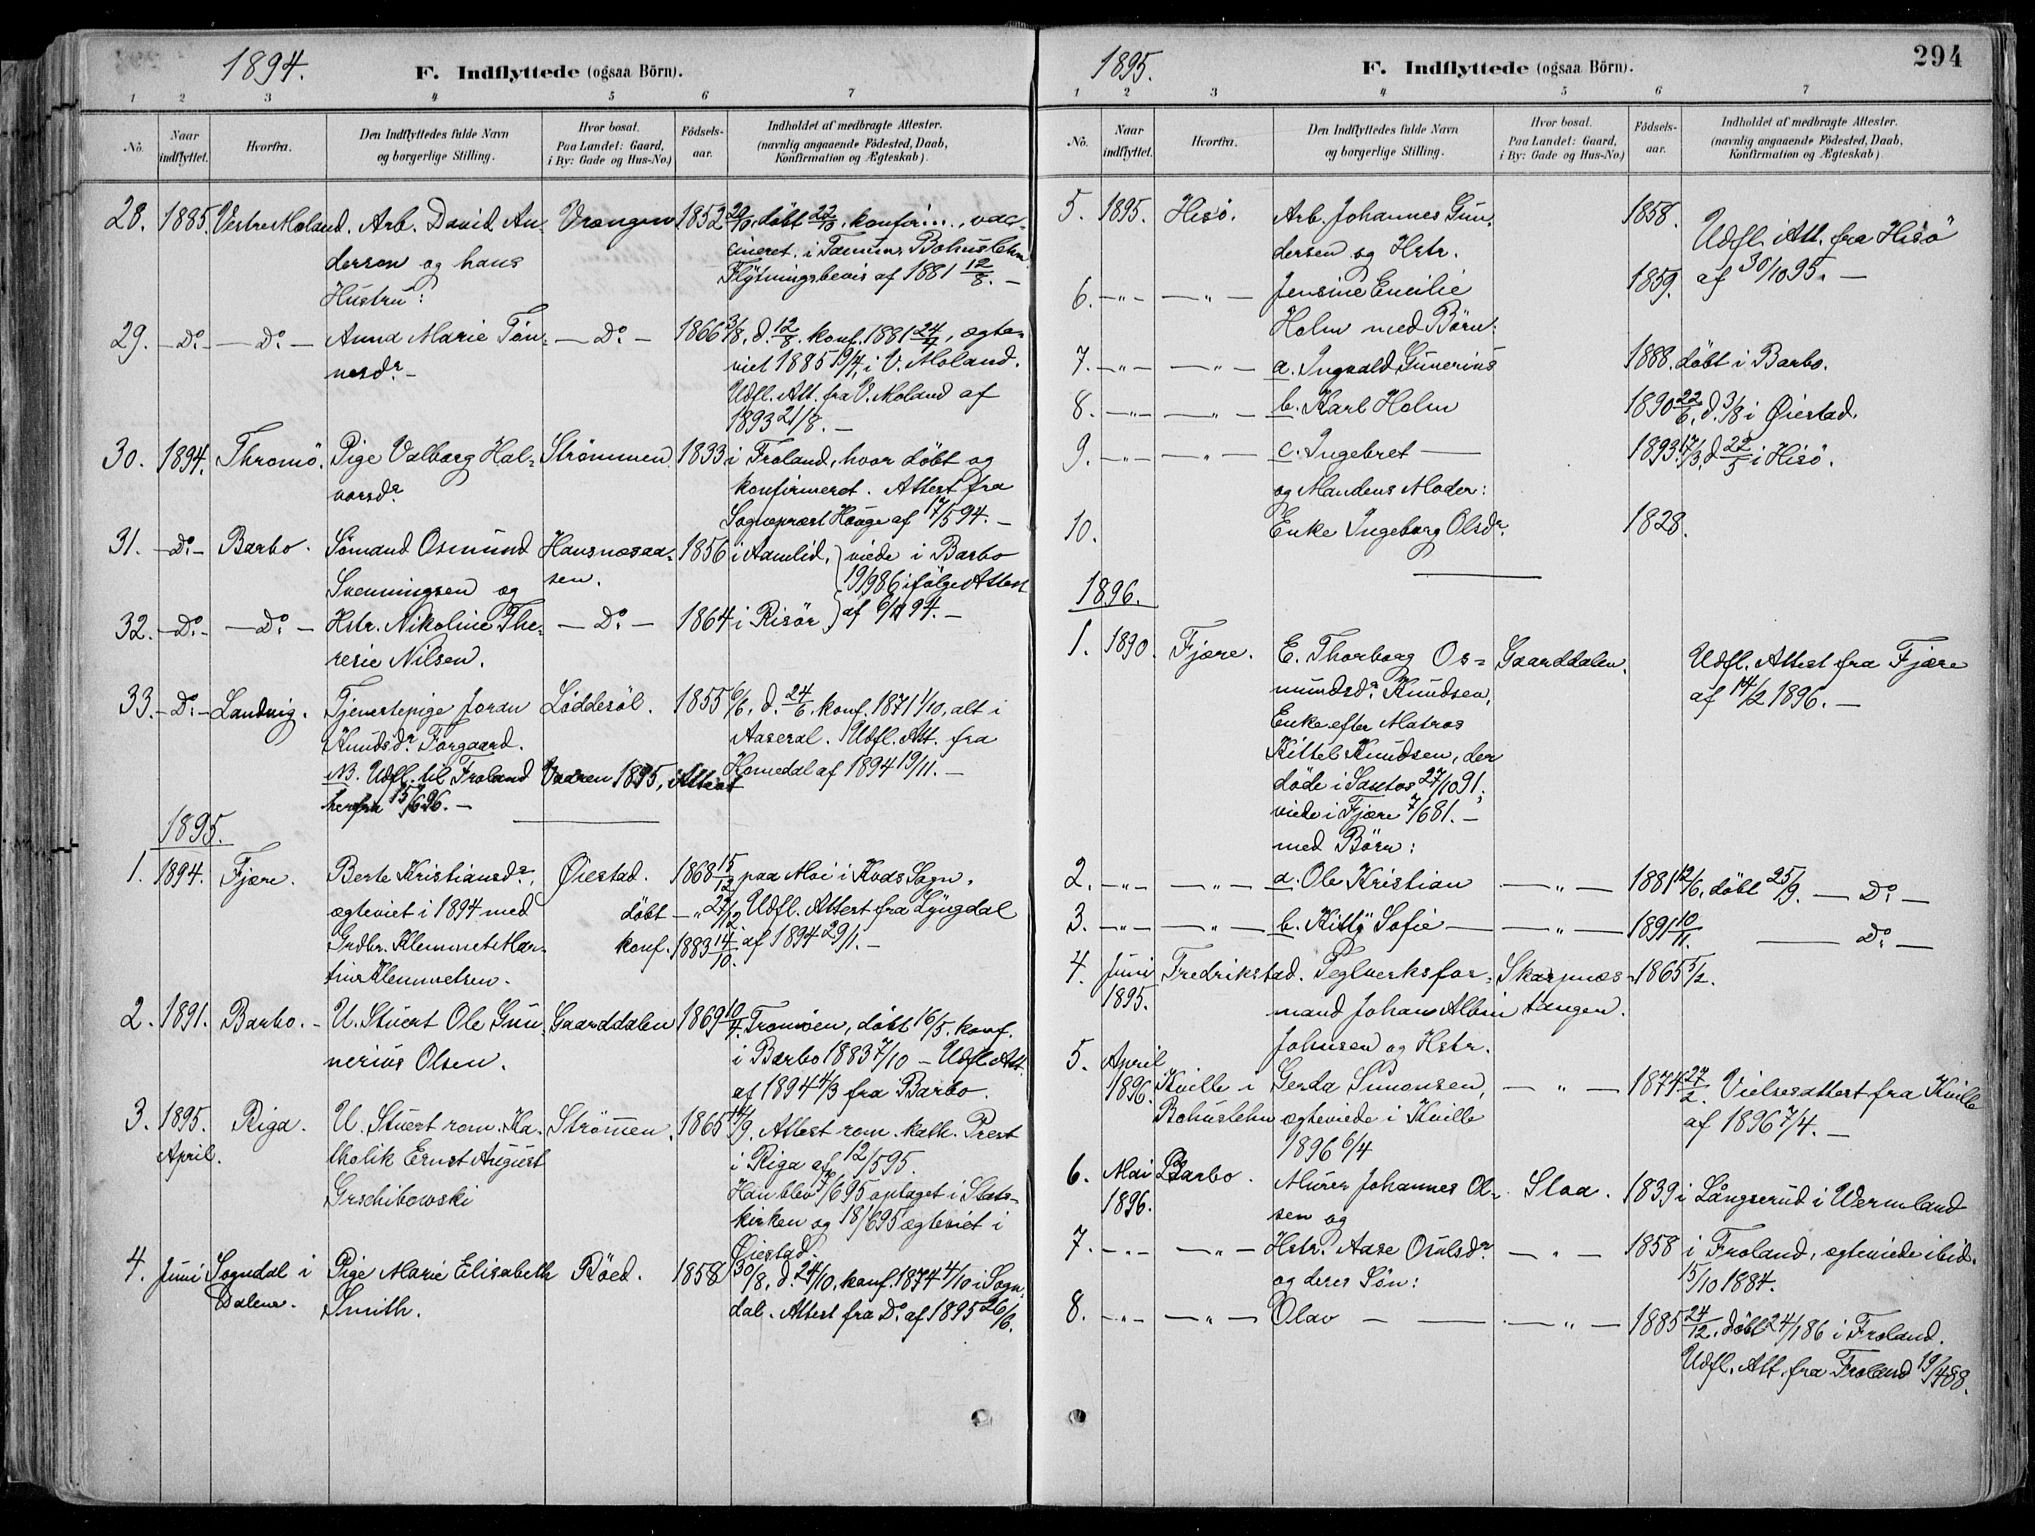 1894.
F. Indflyttede (ogsaa Börn).
1 2 3 4 5 6 7
No. Naar indflyttet. Hvorfra. Den Indflyttedes fulde Navn og borgerlige Stilling. Hvor bosat. Paa Landet: Gaard, i By: Gade og Hus-No.) Födsels-aar. Indholdet af medbragte Attester. (navnlig angaaende Födested, Daab, Konfirmation og Ægteskab).
28. 1885 Vestre Moland. Arb. David An- Vrængen 1852 20/9, döbt 22/9, konfir..., vac-
derson og hans cineret i Tanum, Bohuslehn.
Hustru: Flytningsbevis af 1881 12/8. —
29. — Do. — — Do. — Anna Marie Tön- — Do. — 1866 3/8, d. 12/8, konf. 1881 24/4, ægte-
nesdr. — viet 1885 19/4, i V. Moland.
Udfl. Att. fra V. Moland af
1893 21/8. —
30. 1894. Thromö. Pige Valborg Hal- Strömmen 1833 i Froland, hvor döbt og
vorsdr. konfirmeret. Attest fra
Sognepræst Hauge af 17/5 94. —
31. — Do. — Barbo. Sömand Osmund Hansnæsaa- 1856 i Aamlid, viede i Barbo
Svenningsen og sen. 19/9 86 ifölge Attest
32. — Do. — — Do. — Hstr. Nikoline The- — Do. — 1864 i Risör af 6/11 94. —
resie Nilsen.
33. — Do. — Landvig. Tjenestepige Joran Löddesöl. 1855 6/6, d. 24/6, konf. 1871 1/10, alt i
Knudsdr. Forgaard. Aaseral. Udfl. Att. fra
NB. Udfl. til Froland Vaaren 1895, Attest Homedal af 1894 19/11. —
herfra 15/6 96. —
1895.
1. 1894. Fjære. Berte Kristiansdr., Öiestad. 1868 15/12 paa Moi i Kvås Sogn.
ægteviet i 1894 med döbt — „ 29/12. Udfl. Attest fra Lyngdal
Grdbr. Klemmet Mar- konf. 1883 14/10. af 1894 29/1. —
tin Klemmetsen.
2. 1891. Barbo. — U. Stuert Ole Gun- Gaarddalen 1869 10/4. Tromöen, döbt 16/5, konf.
nerius Olsen. i Barbo 1883 7/10 — Udfl. Att.
af 1894 4/3 fra Barbo.
3. 1895. Riga. U. Stuert rom. Ka- Strömmen. 1865 14/9. Attest rom. kath. Prest
April. tholik Ernst August i Riga af 12/5 95.
Grschibowski Han blev /6 95 optaget i Stats-
kirken og 18/6 95 ægteviet i
Öiestad.
4. Juni Sogndal i Pige Marie Elisabeth Röed. 1858 30/8, d. 24/10, konf. 1874 4/10 i Sogn-
Dalene. Smith. dal. Attest fra Do. af 1895 26/6.
1895.
F. Indflyttede (ogsaa Börn).
294
1 2 3 4 5 6 7
No. Naar indflyttet. Hvorfra. Den Indflyttedes fulde Navn og borgerlige Stilling. Hvor bosat. Paa Landet: Gaard, i By: Gade og Hus-No.) Födsels-aar. Indholdet af medbragte Attester. (navnlig angaaende Födested, Daab, Konfirmation og Ægteskab).
5. 1895. Hisö. Arb. Johannes Gun- 1858. Udfl. Att. fra Hisö
dersen og Hstr.
6. — „ — — „ — Jensine Emilie 1859. af 30/10 95. —
Holm med Börn:
7. — „ — — „ — a. Ingvald Gunerius 1888. döbt i Barbo.
8. — „ — — „ — b. Karl Holm 1890 22/6, d. 3/8 i Öiestad.
9. — „ — — „ — c. Ingebret — 1893. 17/3, d 22/5 i Hisö.
og Mandens Moder:
10. Enke Ingeborg Olsdr. 1828.
1896.
1. 1890. Fjære. E. Thorborg Os- Gaarddalen. Udfl. Attest fra Fjære
mundsdr. Knudsen, af 14/2 1896. —
Enke efter Matros
Kittel Knudsen, der
döde i Santos 27/10 91;
viede i Fjære 7/6 81. —
med Börn:
2. — „ — — „ — a. Ole Kristian — „ — 1881 12/6, döbt 25/9. — Do. —
3. — „ — — „ — b. Kitty Sofie — — „ — 1891 10/11. — Do. —
4. Juni Fredrikstad. Teglverksfor- Skarpnæs- 1865 5/2.
1895. mand Johan Albin tangen.
Johnsen og Hstr.
5. April
1896. Kville i Gerda Simonsen, — „ — 1874. 27/2. Vielsesattest fra Kville
Bohuslehn ægteviede i Kville af 1896 7/4. —
1896 6/4
6. Mai Barbo. Murer Johannes Ol- Sloa. 1839 i Långserud i Wermland
1896. sen og
7. — „ — — „ — Hstr. Aase Osulsdr. — „ — 1858 i Froland, ægteviede ibid.
og deres Sön: 15/10 1884.
8. — „ — — „ — Olav — — — „ — 1885 24/12, döbt 24/1 86 i Froland.
Udfl. Att. fra Froland 19/4 88.